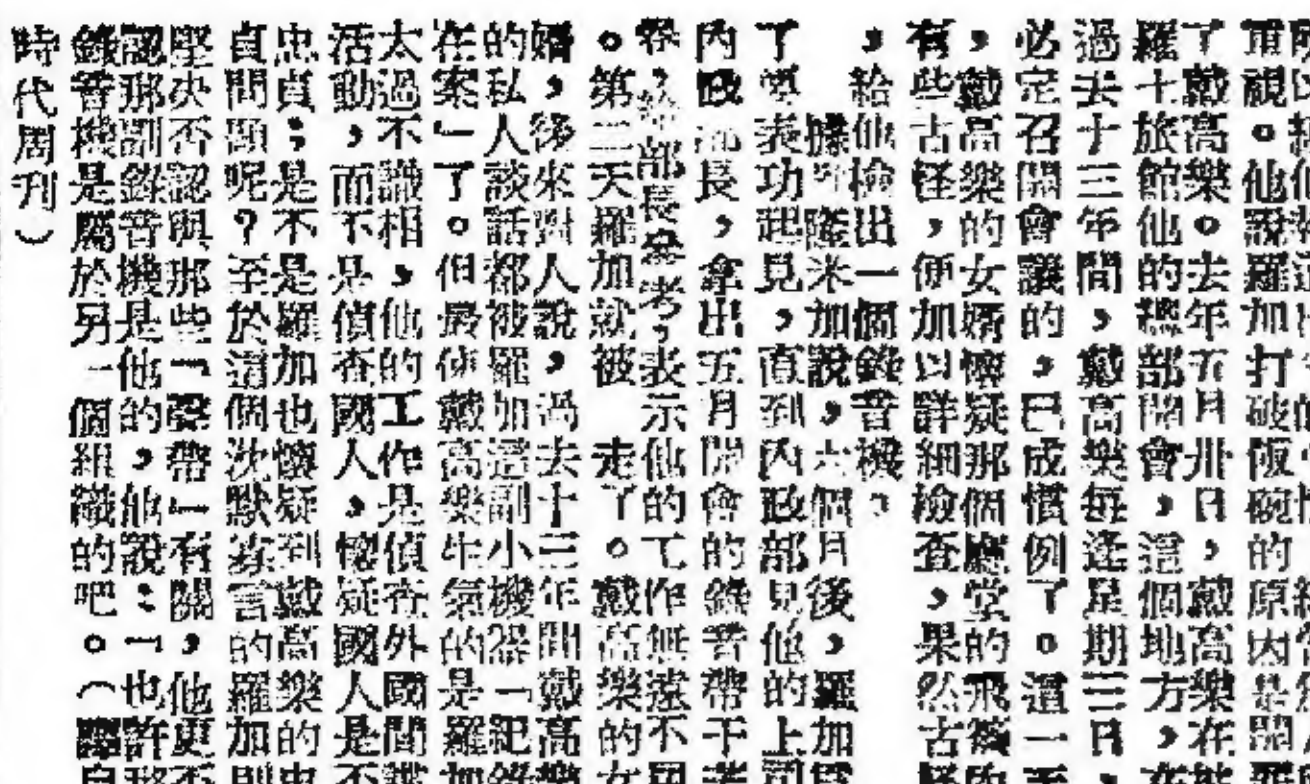 重視。他說羅加打破飯碗的原因是開
了戴高樂。去年五月卅日，戴高樂在
羅十旅館他的總部開會，這個地方，
過去十三年間，戴高樂每逢星期三日
必定召開會議的，已成慣例了。這一
，戴高樂的女婿懷疑那個應堂的飛簷
有些古怪，便加以詳細檢查，果然古
，給他檢出一個錄音機。
據隆米加說，六個月後，羅加
了表功起見，直到內政部見他的上司
內政部長，拿出五月開會的錄音帶
部長參考，表示他的工作無遠不
。第二天羅加就被走了。戴高樂的
婿，後來對人說，過去十三年間戴高樂
的私人談話都被羅加這副小機器「紀錄
在案」了。但最使戴高樂生氣的是羅加
太過不識相，他的工作是偵查外國間諜
活動，而不是偵查國人，懷疑國人是不
忠貞；是不是羅加也懷疑到戴高樂的忠
貞問題呢？至於這個沈默寡言的羅加則
堅決否認與那些「聲帶」有關，他更否
認那副錄音機是他的，他說：「也許那
錄音機是屬於另一個組織的吧。（譯自
時代周刊）